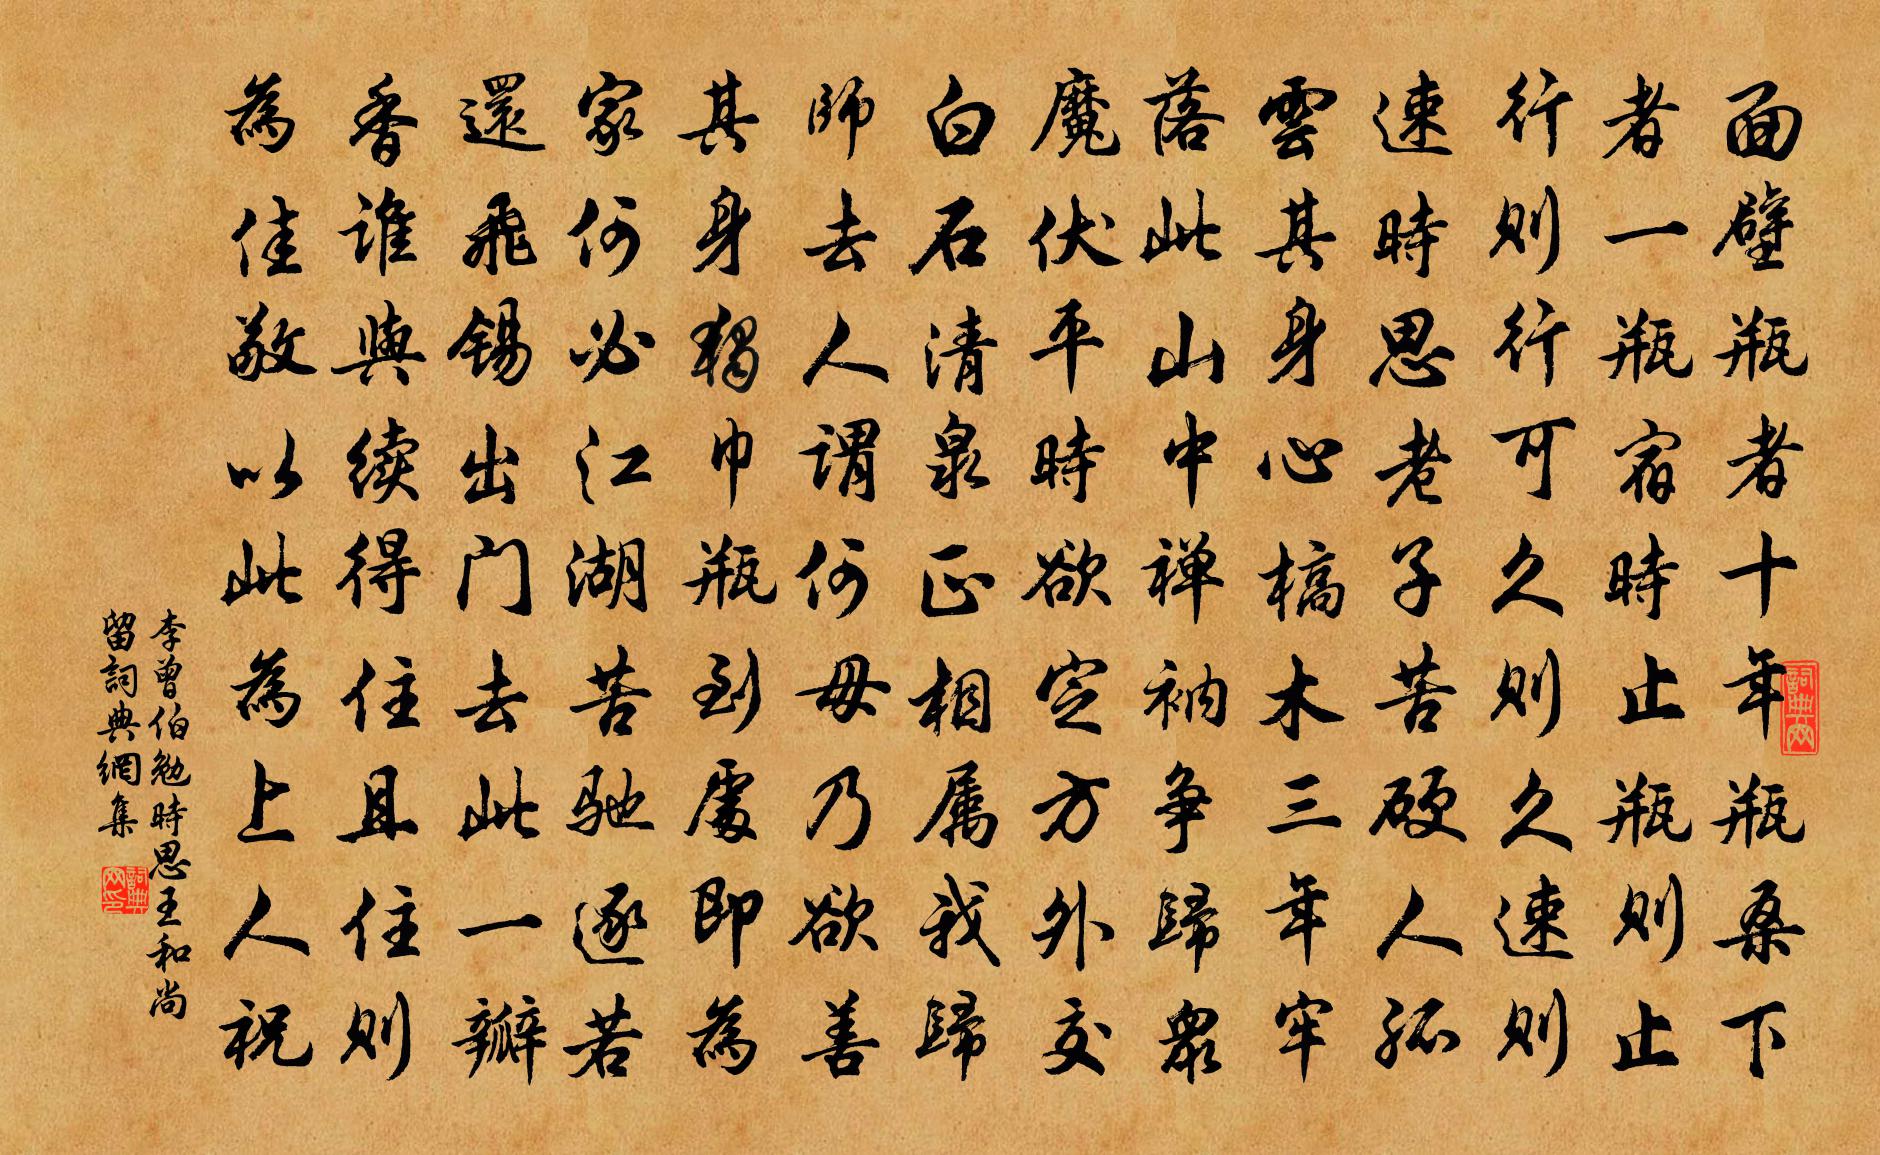 面壁瓶者十年瓶桑下
者一瓶宿時止瓶则止
行则行可久则久速则
速時思老子苦硬人孤
雲其身心槁木三年牢
落此山中禅衲争歸眾
魔伏平時欲定方外交
白石清泉正相属我歸
師去人謂何毋乃欲善
其身獨巾瓶到處即為
家何必江湖苦驰逐若
還飛锡出门去此一瓣
香誰與续得住且住则
為佳敬以此為上人祝
李曾伯勉時思王和尚
留詞典網集
詞典网
詞典网印